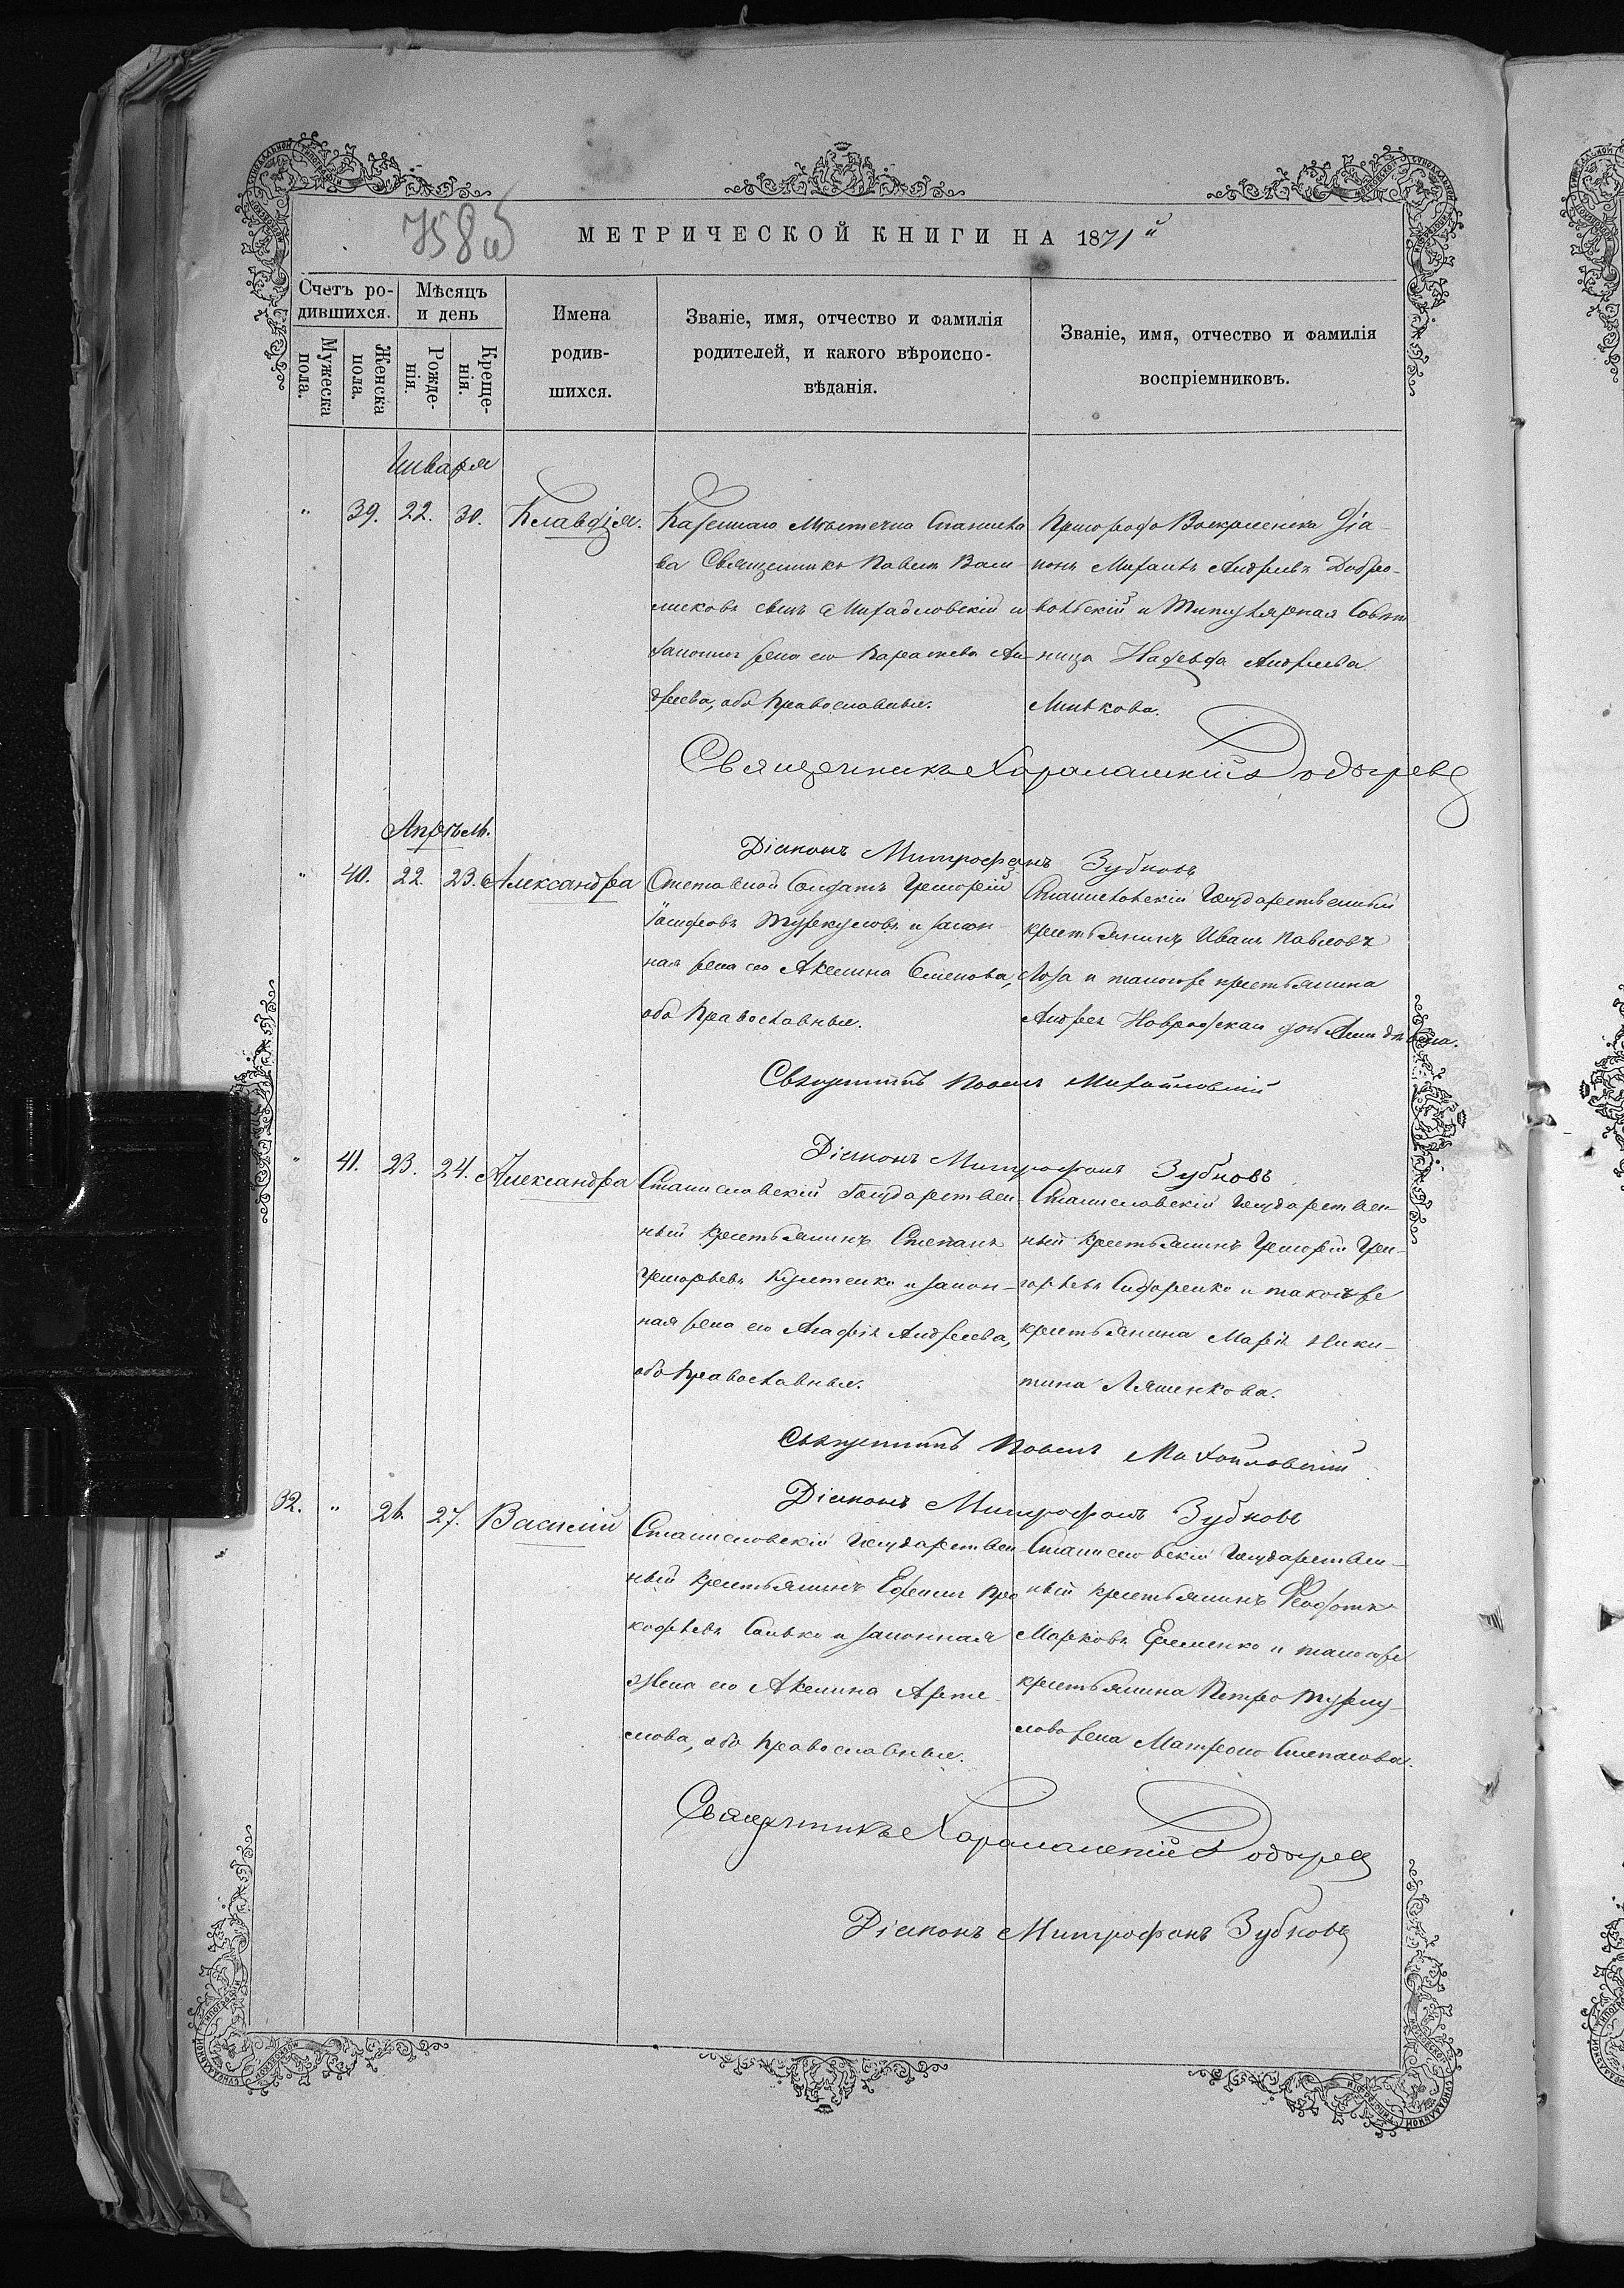 758 об
МЕТРИЧЕСКОЙ КНИГИ НА 1871й
Счетъ родившихся.
Мѣсяцъ и день
Имена родившихся.
Званіе, имя, отчество и фамилія родителей, и какого вѣроисповѣданія.
Званіе, имя, отчество и фамилія воспріемниковъ.
Мужеска пола.
Женска пола.
Рожденія.
Крещенія.
Января
" 39. 22. 30. Клавдія.
Казеннаго Мѣстечка Станисла-
ва Священникъ Павелъ Васи-
лисковъ сынъ Михайловскій и
законная жена его Параскева Ан-
дреева, оба православные.
Пригорода Воскресенска Діа-
конъ Михаилъ Андреевъ Добро-
вольскій и Титулярная Совѣт-
ница Надежда Андреева
Минькова.
Священникъ Харалампій Бодыревъ
Апрѣль.
Діаконъ Митрофанъ Зубковъ
" 40. 22. 23. Александра
Отставной Солдатъ Григорій
Іосифовъ Туркуловъ и закон-
ная жена его Акелина Семенова,
оба Православные.
Станиславскій Государственный
крестьянинъ Иванъ Павловъ
Лоза и такогоже крестьянина
Андрея дочь
Священникъ Павелъ Михайловскій
Діаконъ Митрофанъ Зубковъ
" 41. 23. 24. Александра
Станиславскій Государствен-
ный Крестьянинъ Степанъ
Григорьевъ и закон-
ная жена его Агафія Андреева,
оба Православные.
Станиславскій Государствен-
ный Крестьянинъ Григорій Гри-
горьевъ Сидоренко и такогоже
крестьянина Марія Ники-
тина Ляшенкова.
Священникъ Павелъ Михайловскій
Діаконъ Митрофанъ Зубковъ
32. " 26. 27. Василій
Станиславскій Государствен-
ный Крестьянинъ Про-
кофьевъ Салько и законная
жена его Акелина Арте-
мова, оба православные.
Станиславскій Государствен-
ный крестьянинъ Феофотъ
Марковъ Еременко и такогоже
крестьянина Петра Турку-
лова жена Матрона Степанова.
Священникъ Харалампій Бодыревъ
Діаконъ Митрофанъ Зубковъ